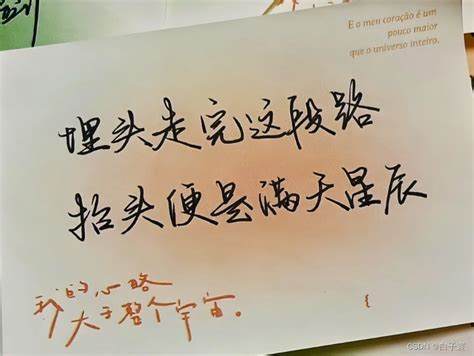 E o meu coração é um
pouco maior
que o universo inteiro.
埋头走完这段路
抬头便是满天星辰
我的心略
大于整个宇宙。
CSDN @白子寰